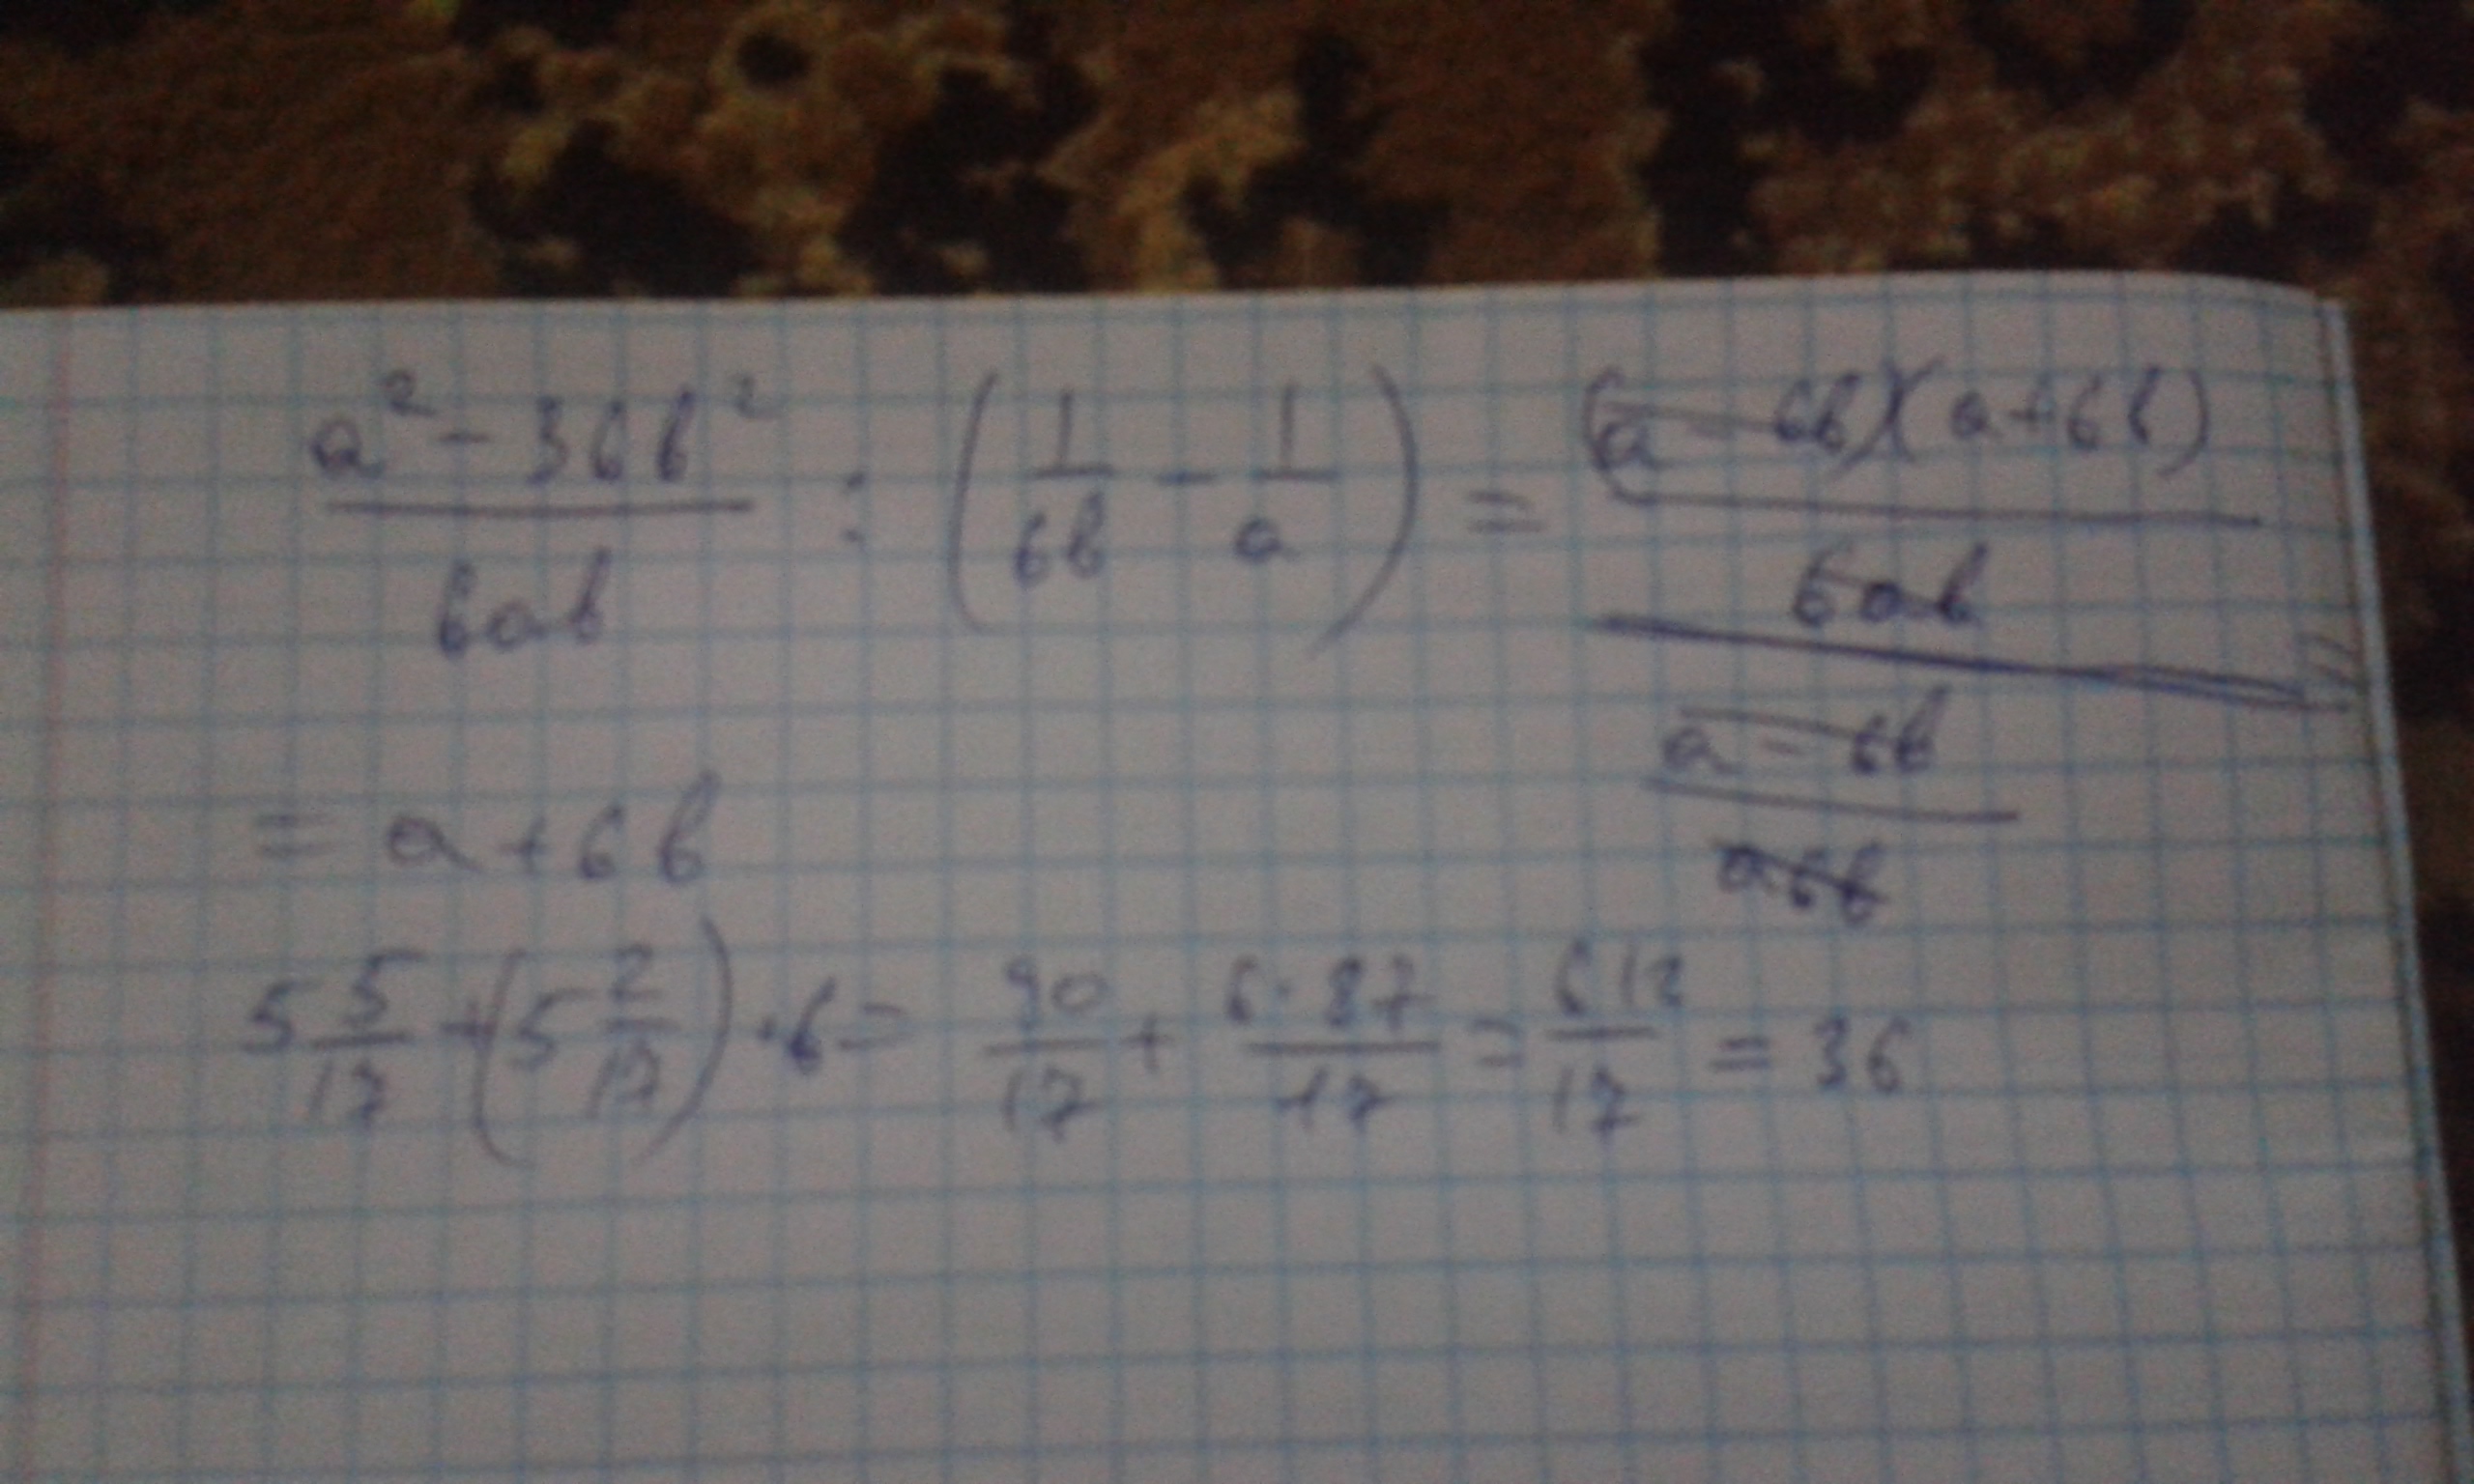 (a² - 36b²)/(6ab) : (1/(6b) - 1/a) = ((a - 6b)(a + 6b)/(6ab))/((a - 6b)/(a6b)) =
= a + 6b
5 5/17 + (5 2/17) · 6 = 90/17 + (6 · 87)/17 = 612/17 = 36